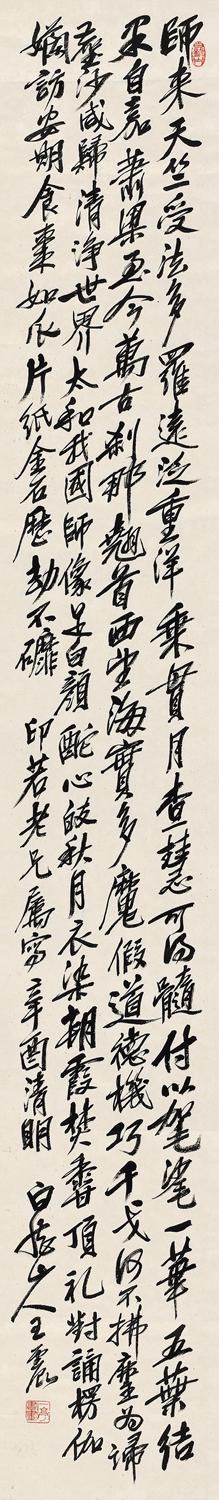 師來天竺受法多羅遠泛重洋乘貫月查慧可得髓付以袈裟一華五葉結
果自嘉蕭梁至今萬古剎那翹首西望海寶多魔假道德機巧干戈何不拂塵為埽
沙咸歸清淨世界太和我國師像足白顏酡心皎秋月衣染朝霞焚香頂禮對誦楞伽
訪安期食棗如瓜片紙金石歷劫不磨 印若老兄屬寫 辛酉清明 白龍山人王震